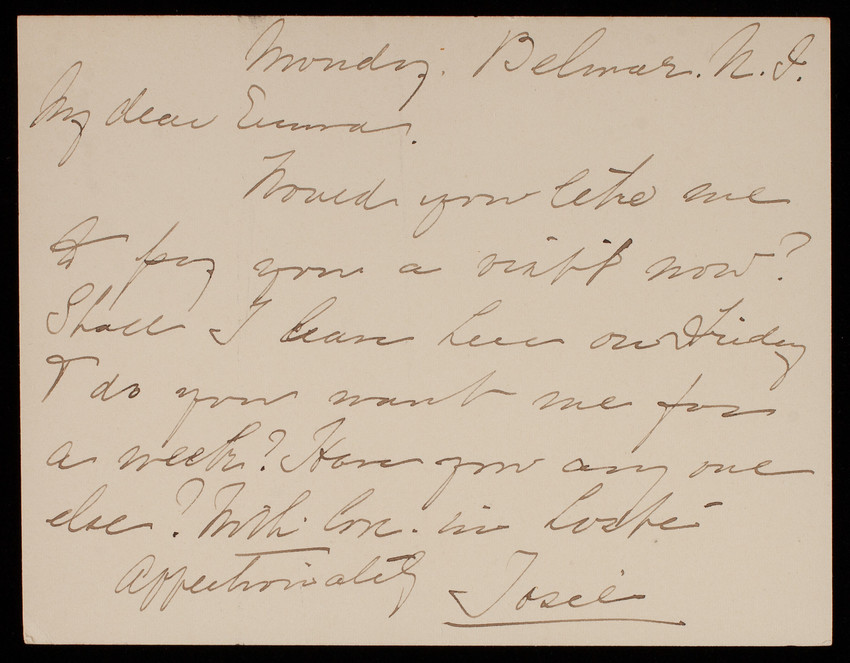 Monday. Belmar. N. J.
My dear Emma.
Would you like me
to pay you a visit now?
Shall I leave here on Friday
& do you want me for
a week? Have you any one
else? With love. in haste
Affectionately Josie